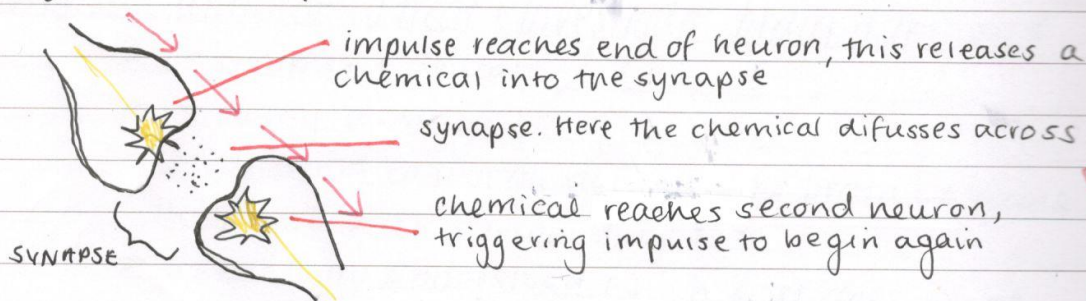 impulse reaches end of neuron, this releases a
chemical into the synapse
synapse. Here the chemical difusses across
chemical reaches second neuron,
triggering impulse to begin again
SYNAPSE